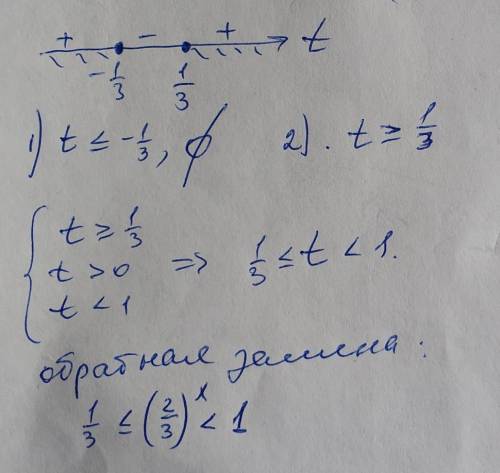 + − + t
-1/3 1/3
1) t ≤ -1/3, ∅ 2). t ≥ 1/3
{ t ≥ 1/3
t > 0 => 1/3 ≤ t < 1.
t < 1
обратная замена:
1/3 ≤ (2/3)^x < 1